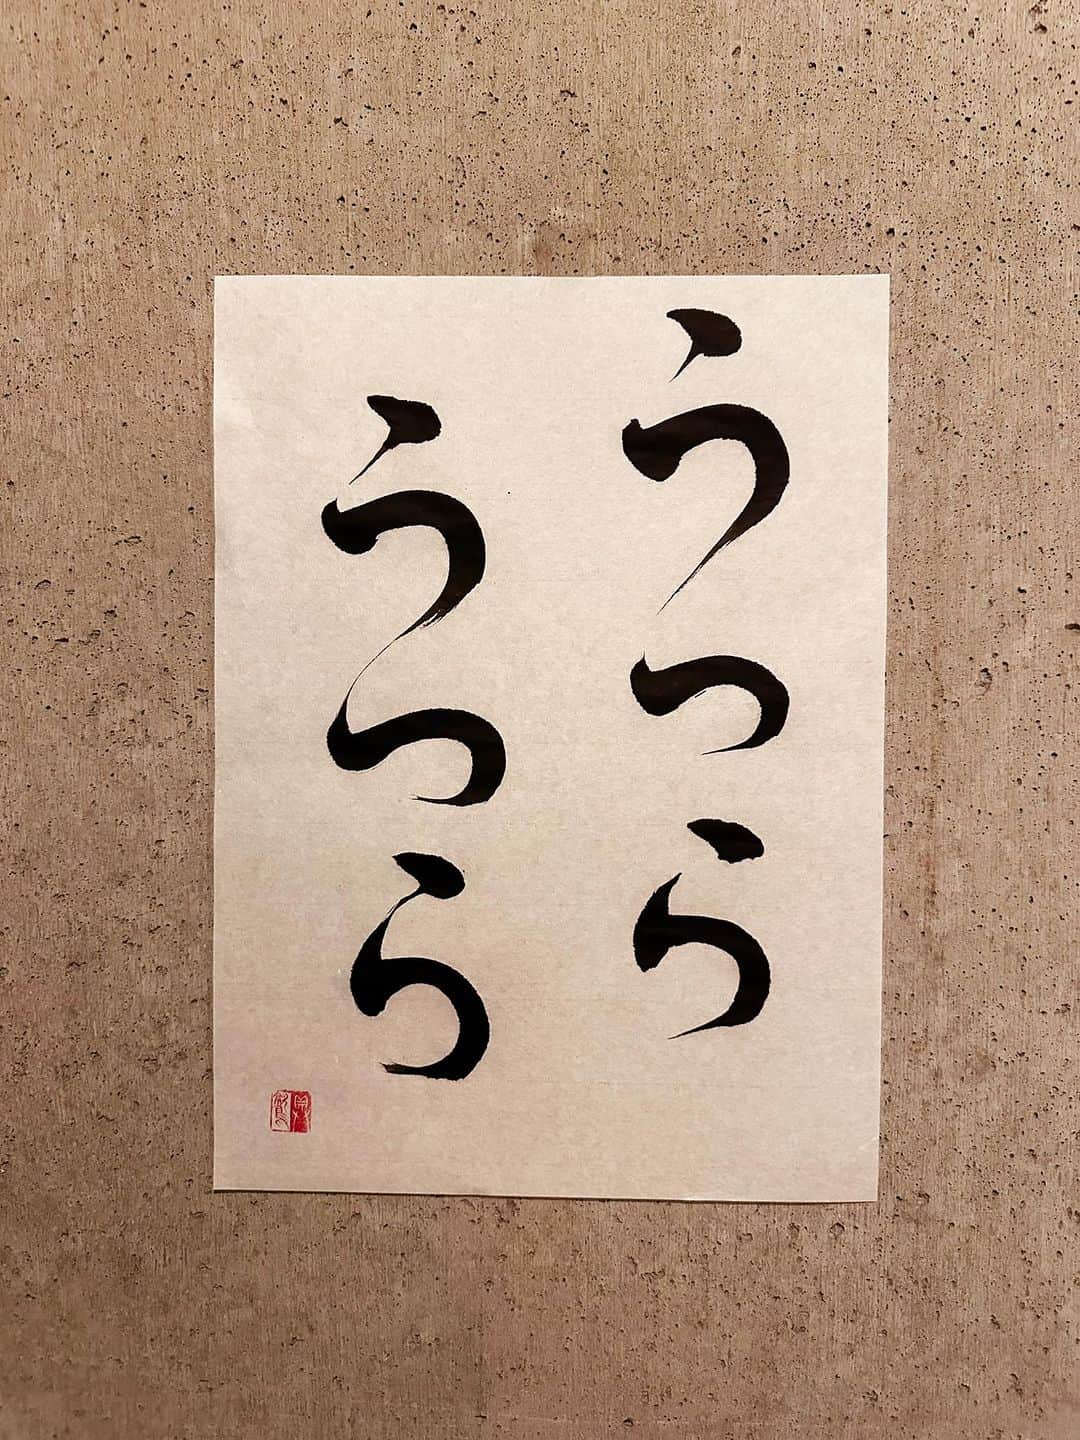 うつら
うつら